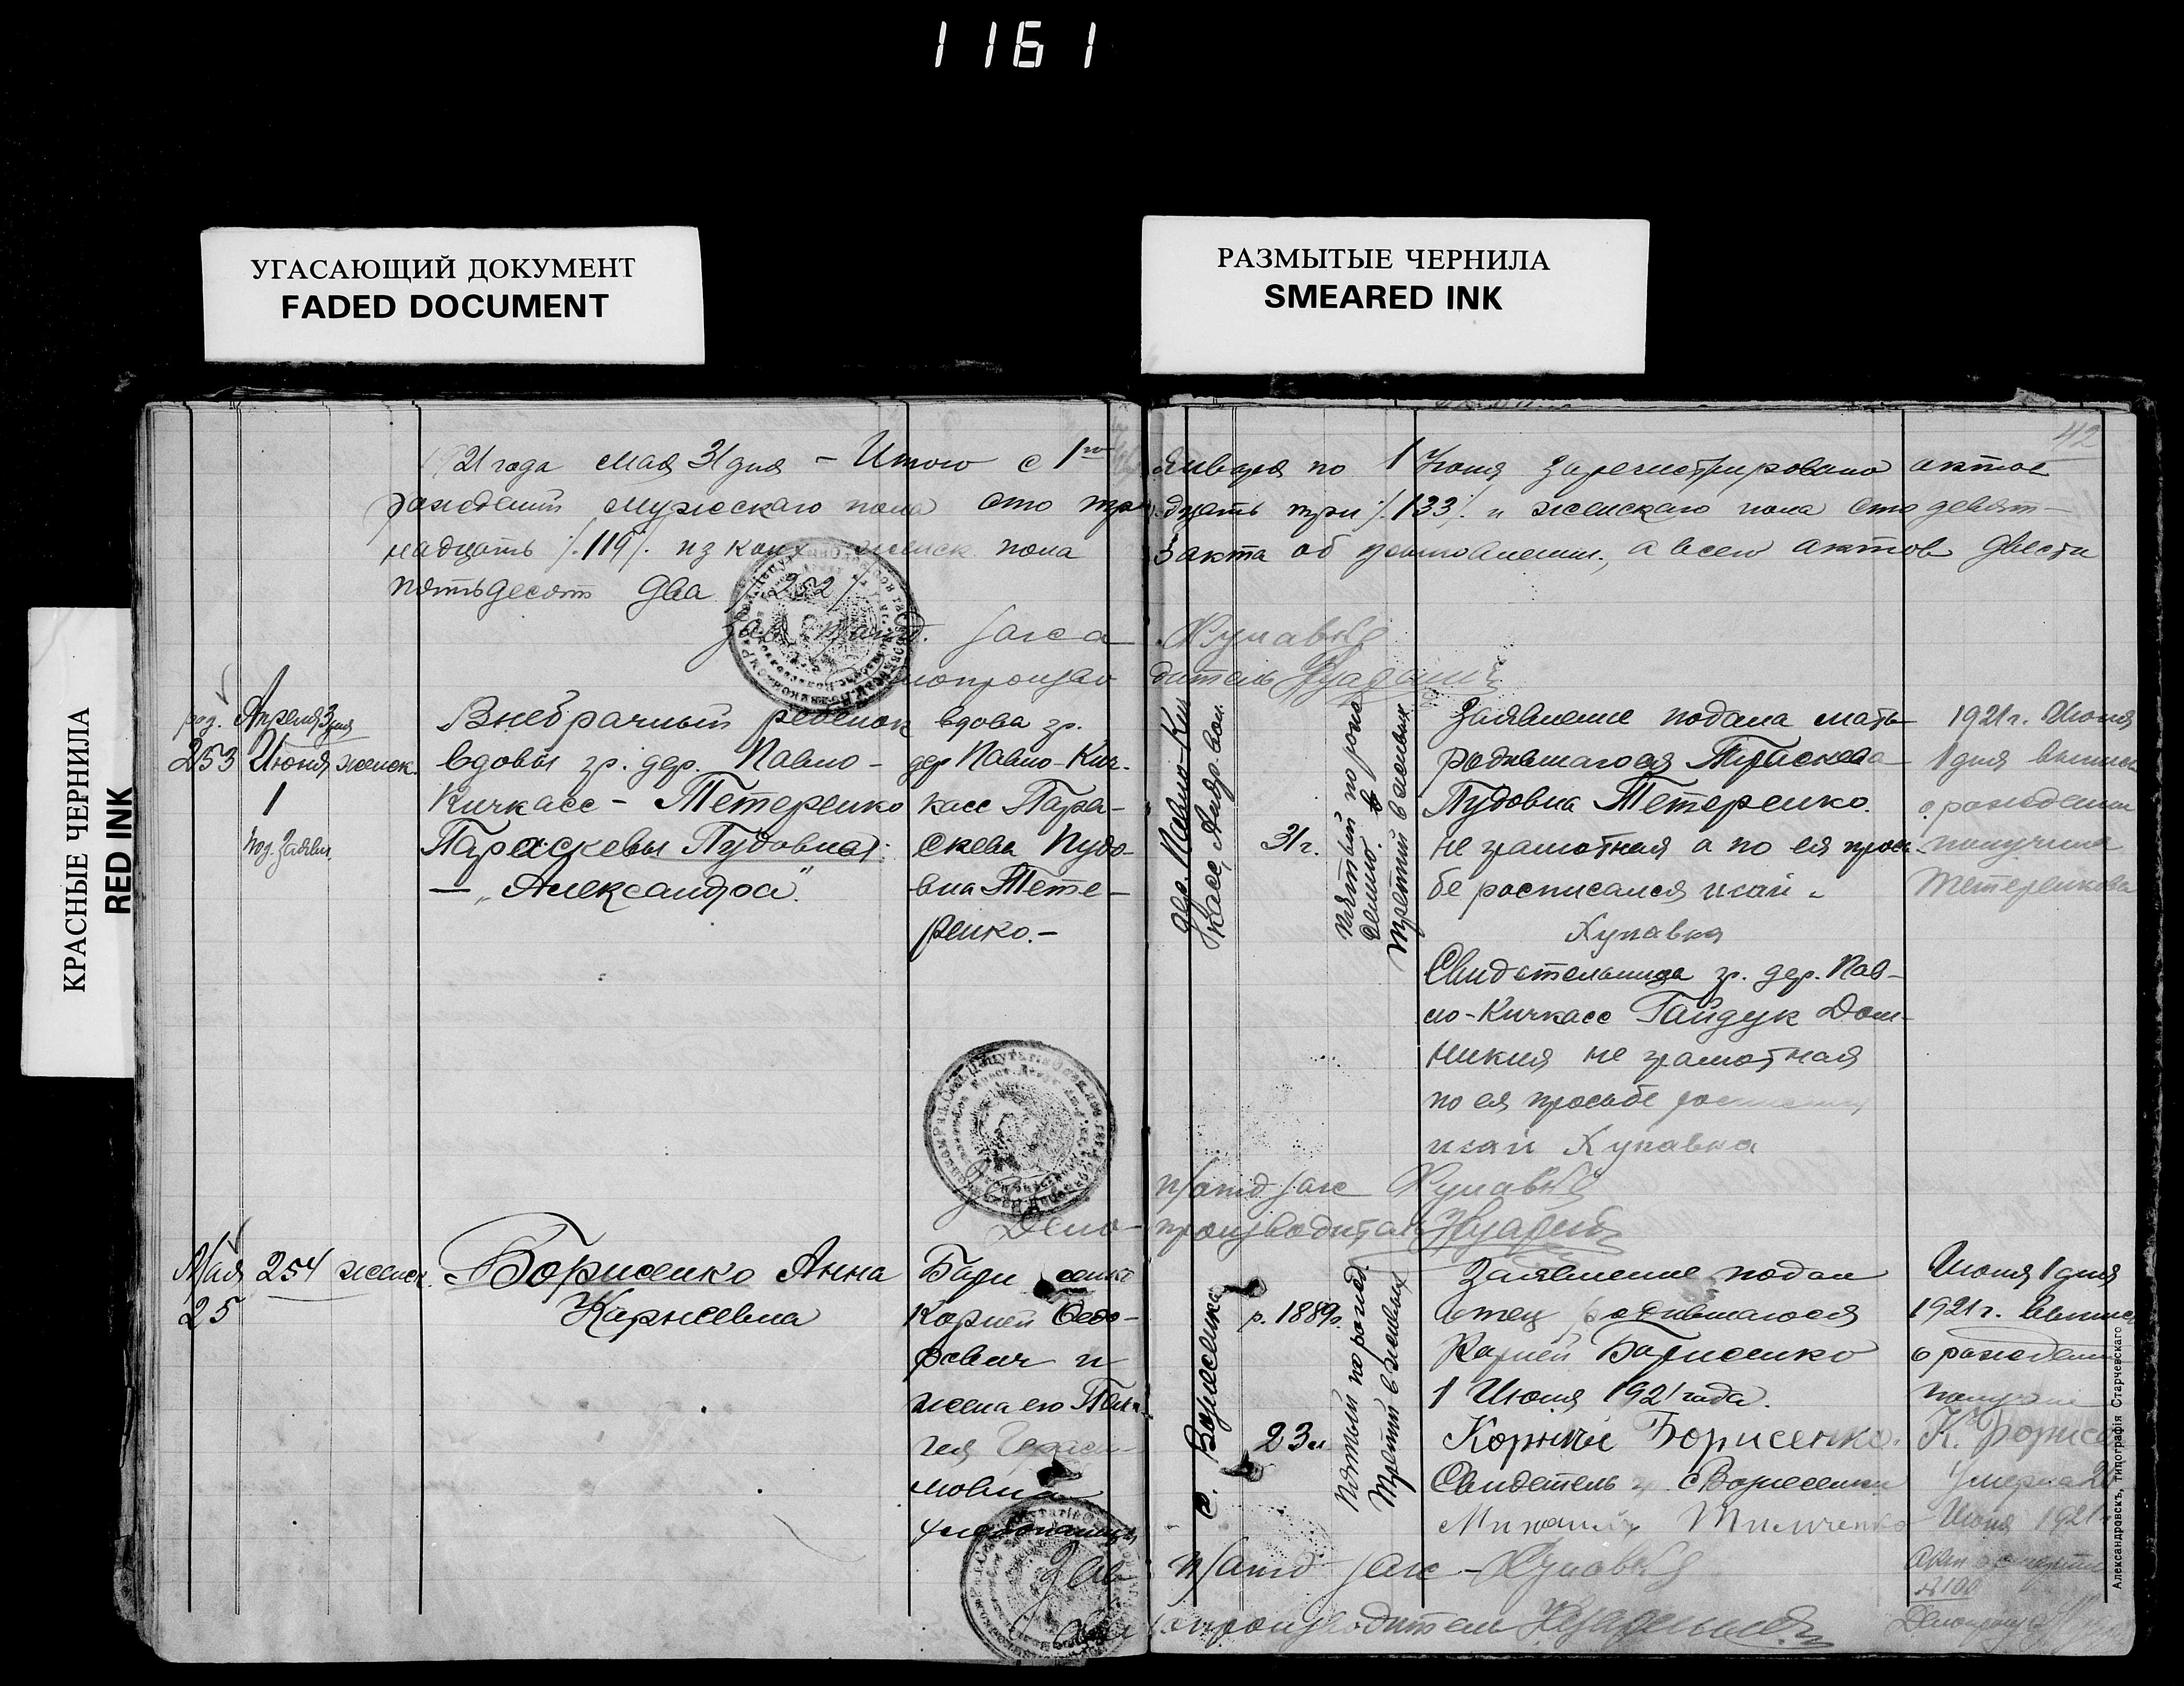 1161
УГАСАЮЩИЙ ДОКУМЕНТ
FADED DOCUMENT
РАЗМЫТЫЕ ЧЕРНИЛА
SMEARED INK
КРАСНЫЕ ЧЕРНИЛА
RED INK
42
1921 года мая 31 дня - Итого с 1го января по 1 Июня зарегистрировано актов
рождений мужскаго пола сто тридцать три /.133/. и женскаго пола сто девят-
надцать /.119/. из коих женск. пола 3 акта об , а всего актов двести
пятьдесят два /252/
Зав. п/отд. загса Хупавка
Делопроизводитель
род. Апреля 3 дня
253 Июня женск.
1
поз. заявл.
Внебрачный ребенок
вдовы гр. дер. Павло-
Кичкасс - Тетеренко
Параскевы Пудовна:
— „Александра".
вдова гр.
дер Павло-Кич-
касс Пара-
скева Пудо-
вна Тете-
ренко.-
дер. Павло-Кич
касс, Алдр. вол.
31 г.
пятый по рожд
дению. в
третий в живых
Заявление подала мать
родившагося Параскева
Пудовна Тетеренко.
не грамотная а по ея прось-
бе росписался
Хупавка
Свидетельница гр. дер. Пав-
ло-Кичкасс Гайдук Дом-
никия не грамотная
по ея просьбе
Хупавка
1921 г. Июня
1 дня выпись
о рождении
получила
Тетеренкова
Зав. п/отд загс Хупавка
Делопроизводитель
Мая 254 женск.
25
Борисенко Анна
Карнеевна
Бори сенко
Корней Федо-
рович и
жена его Пела-
гея Гераси-
мовна
с. Вознесенка
р. 1889 г.
23 л
пятый по рожд.
третий в живых
Заявление подал
отец родившагося
Карней Борисенко
1 Июня 1921 года.
Корней Борисенко.
Свидетель гр. с Вознесенки
Михаил Тимченко
Июня 1 дня
1921 г. выпись
о рождении
получил
К. Борисен
Умерла 26
Июня 1921 г
Акт о смерти
№ 100
Делопроизв
Зав п/отд загс - Хупавка
Делопроизводитель
Александровскъ, типографія Старчевскаго